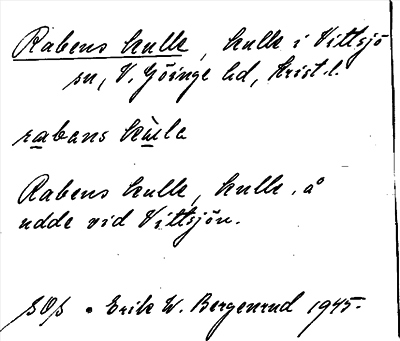 Rabens kulle, kulle i Vittsjö
sn, V. Göinge hd, Krist. l.
rabans kule
Rabens kulle, kulle, å
udde vid Vittsjön.
Erik W. Bergenrud 1945.